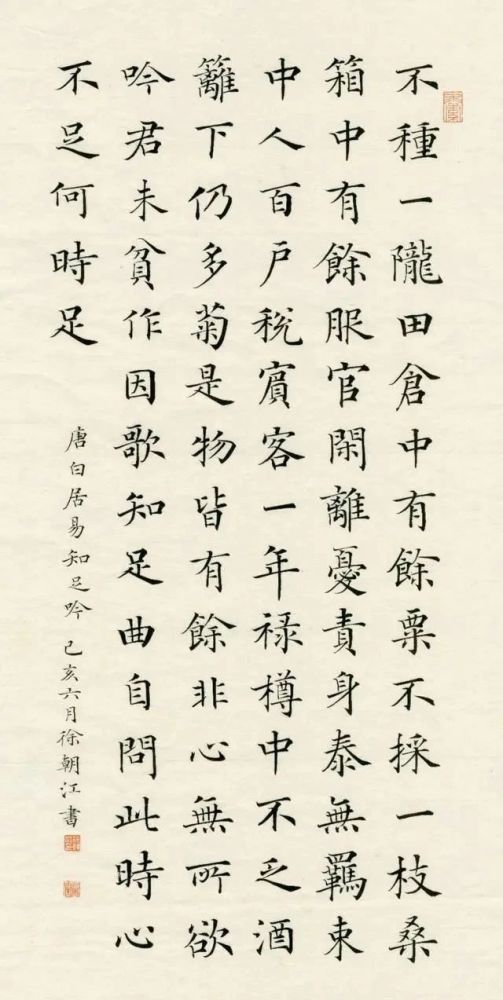 不種一隴田倉中有餘粟不採一枝桑
箱中有餘服官閑離憂責身泰無羈束
中人百戶稅賓客一年祿樽中不乏酒
籬下仍多菊是物皆有餘非心無所欲
吟君未貧作因歌知足曲自問此時心
不足何時足
唐白居易知足吟己亥六月徐朝江書